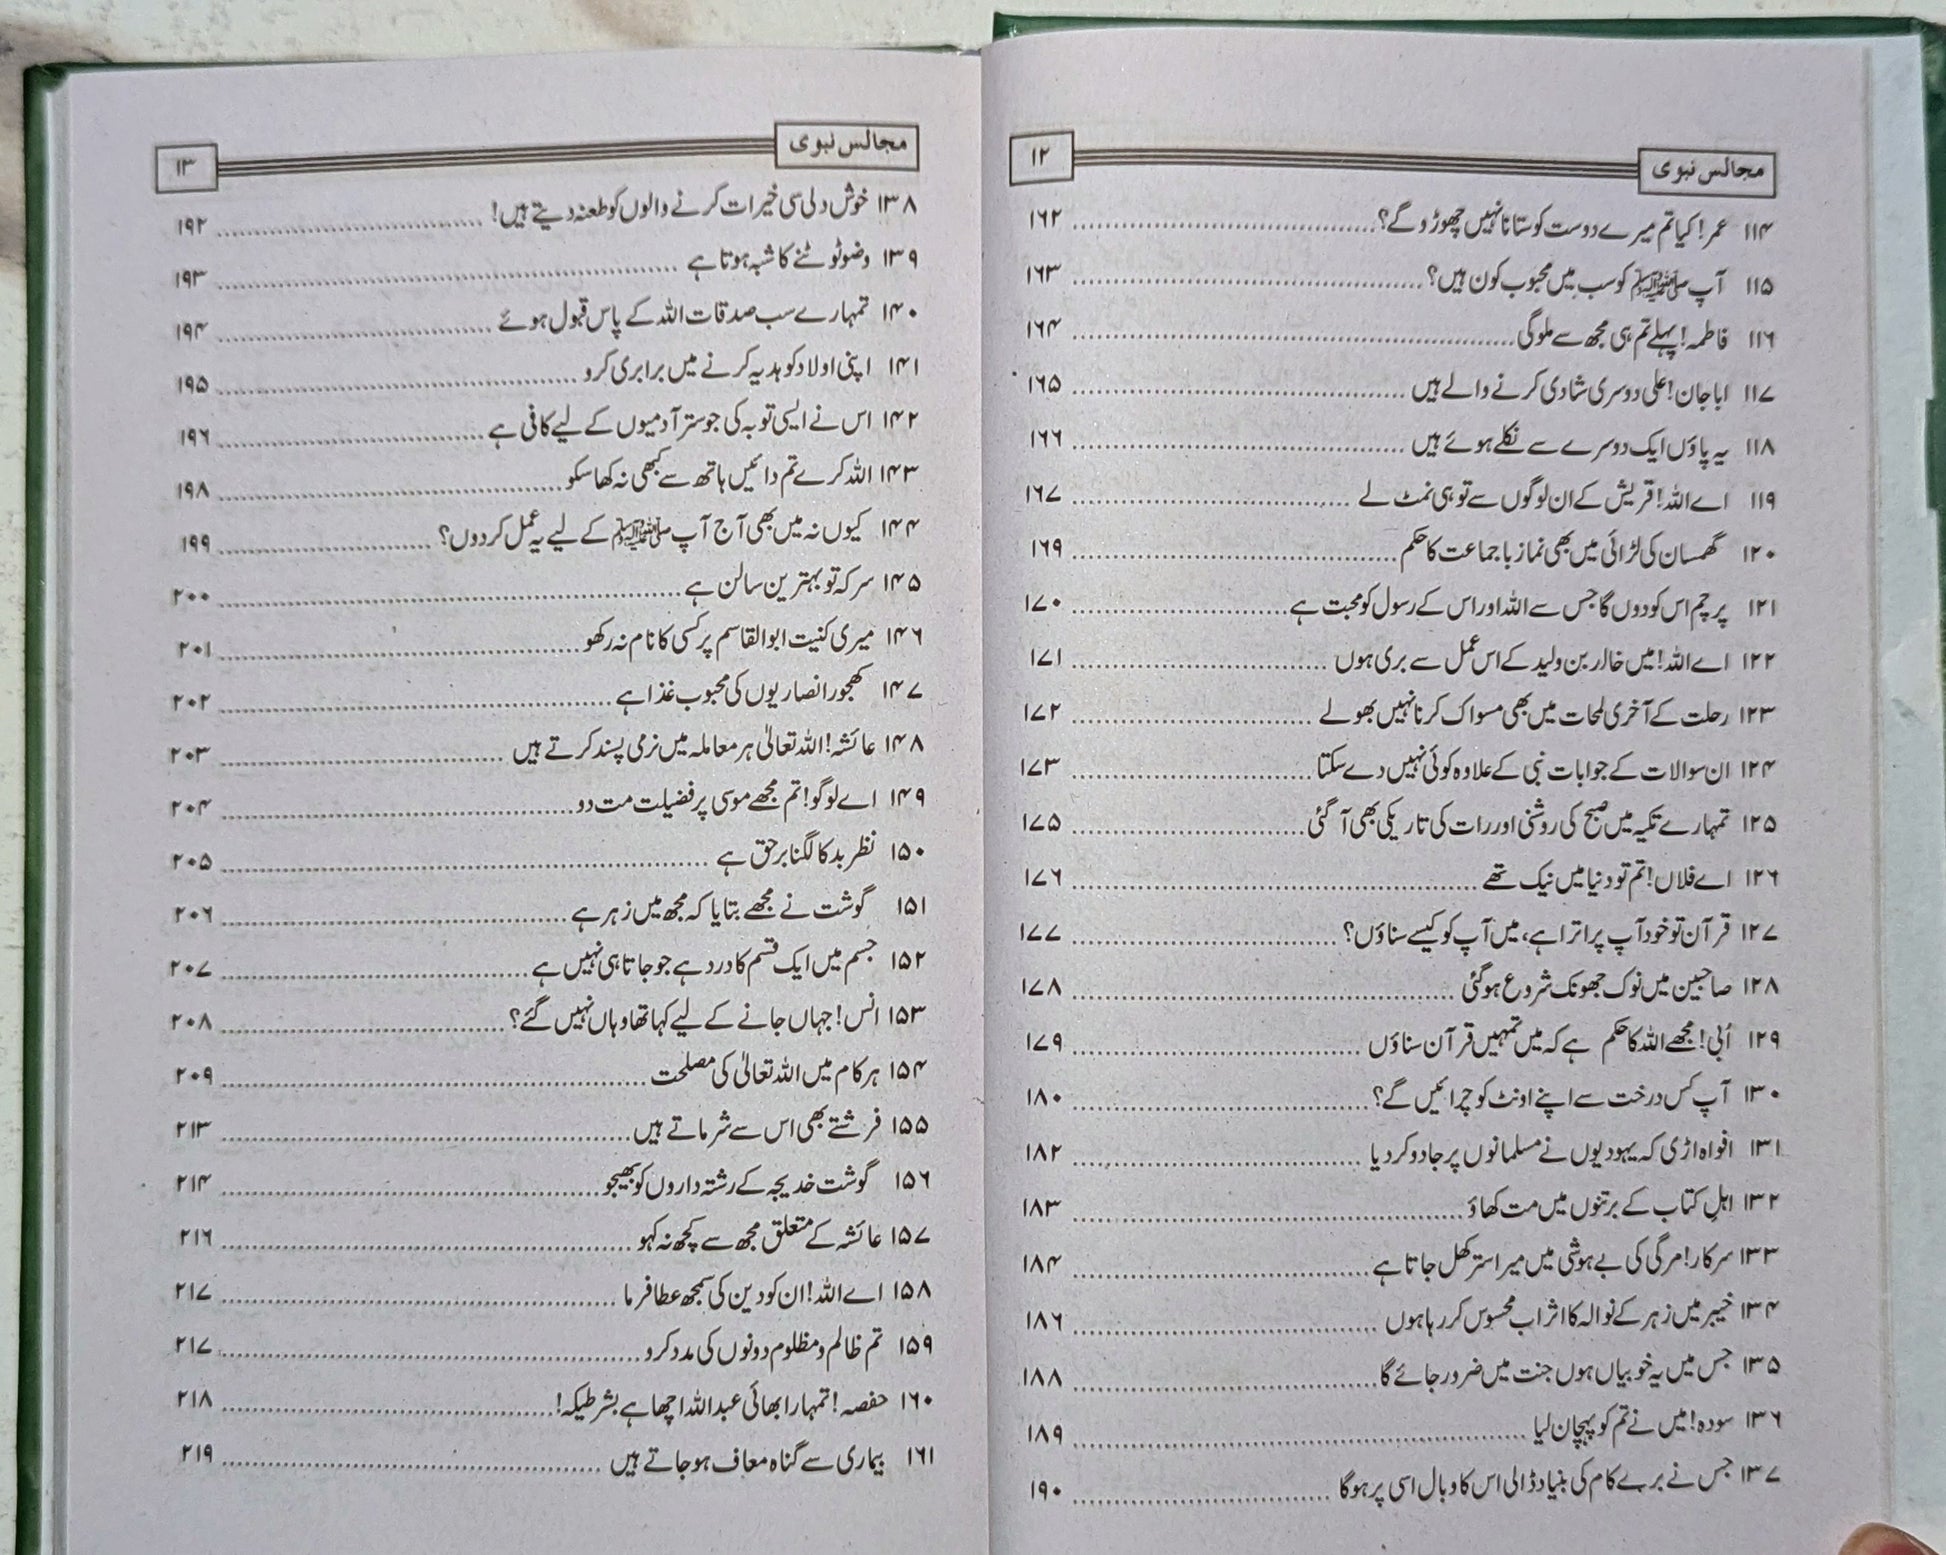 مجالس نبوی ۱۲
۱۱۴ عمر! کیا تم میرے دوست کو ستانا نہیں چھوڑو گے؟ ۱۶۲
۱۱۵ آپ ﷺ کو سب میں محبوب کون ہیں؟ ۱۶۳
۱۱۶ فاطمہ! پہلے تم ہی مجھ سے ملو گی ۱۶۴
۱۱۷ ابا جان! علی دوسری شادی کرنے والے ہیں ۱۶۵
۱۱۸ یہ پاؤں ایک دوسرے سے نکلے ہوئے ہیں ۱۶۶
۱۱۹ اے اللہ! قریش کے ان لوگوں سے تو ہی نمٹ لے ۱۶۷
۱۲۰ گھمسان کی لڑائی میں بھی نماز باجماعت کا حکم ۱۶۹
۱۲۱ پرچم اس کو دوں گا جس سے اللہ اور اس کے رسول کو محبت ہے ۱۷۰
۱۲۲ اے اللہ! میں خالد بن ولید کے اس عمل سے بری ہوں ۱۷۱
۱۲۳ رحلت کے آخری لمحات میں بھی مسواک کرنا نہیں بھولے ۱۷۲
۱۲۴ ان سوالات کے جوابات نبی کے علاوہ کوئی نہیں دے سکتا ۱۷۳
۱۲۵ تمہارے تکیہ میں صبح کی روشنی اور رات کی تاریکی بھی آ گئی ۱۷۵
۱۲۶ اے فلاں! تم تو دنیا میں نیک تھے ۱۷۶
۱۲۷ قرآن تو خود آپ پر اترا ہے، میں آپ کو کیسے سناؤں؟ ۱۷۷
۱۲۸ صاحبین میں نوک جھونک شروع ہو گئی ۱۷۸
۱۲۹ اُبی! مجھے اللہ کا حکم ہے کہ میں تمہیں قرآن سناؤں ۱۷۹
۱۳۰ آپ کس درخت سے اپنے اونٹ کو چرائیں گے؟ ۱۸۰
۱۳۱ افواہ اڑی کہ یہودیوں نے مسلمانوں پر جادو کر دیا ۱۸۲
۱۳۲ اہلِ کتاب کے برتنوں میں مت کھاؤ ۱۸۳
۱۳۳ سرکار! مرگی کی بے ہوشی میں میرا ستر کھل جاتا ہے ۱۸۴
۱۳۴ خیبر میں زہر کے نوالہ کا اثر اب محسوس کر رہا ہوں ۱۸۶
۱۳۵ جس میں یہ خوبیاں ہوں جنت میں ضرور جائے گا ۱۸۸
۱۳۶ سودہ! میں نے تم کو پہچان لیا ۱۸۹
۱۳۷ جس نے برے کام کی بنیاد ڈالی اس کا وبال اسی پر ہوگا ۱۹۰
مجالس نبوی ۱۳
۱۳۸ خوش دلی سی خیرات کرنے والوں کو طعنہ دیتے ہیں! ۱۹۲
۱۳۹ وضو ٹوٹنے کا شبہ ہوتا ہے ۱۹۳
۱۴۰ تمہارے سب صدقات اللہ کے پاس قبول ہوئے ۱۹۴
۱۴۱ اپنی اولاد کو ہدیہ کرنے میں برابری کرو ۱۹۵
۱۴۲ اس نے ایسی توبہ کی جو ستر آدمیوں کے لیے کافی ہے ۱۹۶
۱۴۳ اللہ کرے تم دائیں ہاتھ سے کبھی نہ کھا سکو ۱۹۸
۱۴۴ کیوں نہ میں بھی آج آپ ﷺ کے لیے یہ عمل کر دوں؟ ۱۹۹
۱۴۵ سرکہ تو بہترین سالن ہے ۲۰۰
۱۴۶ میری کنیت ابوالقاسم پر کسی کا نام نہ رکھو ۲۰۱
۱۴۷ کھجور انصاریوں کی محبوب غذا ہے ۲۰۲
۱۴۸ عائشہ! اللہ تعالیٰ ہر معاملہ میں نرمی پسند کرتے ہیں ۲۰۳
۱۴۹ اے لوگو! تم مجھے موسی پر فضیلت مت دو ۲۰۴
۱۵۰ نظر بد کا لگنا برحق ہے ۲۰۵
۱۵۱ گوشت نے مجھے بتایا کہ مجھ میں زہر ہے ۲۰۶
۱۵۲ جسم میں ایک قسم کا درد ہے جو جاتا ہی نہیں ہے ۲۰۷
۱۵۳ انس! جہاں جانے کے لیے کہا تھا وہاں نہیں گئے؟ ۲۰۸
۱۵۴ ہر کام میں اللہ تعالیٰ کی مصلحت ۲۰۹
۱۵۵ فرشتے بھی اس سے شرماتے ہیں ۲۱۳
۱۵۶ گوشت خدیجہ کے رشتہ داروں کو بھیجو ۲۱۴
۱۵۷ عائشہ کے متعلق مجھ سے کچھ نہ کہو ۲۱۶
۱۵۸ اے اللہ! ان کو دین کی سمجھ عطا فرما ۲۱۷
۱۵۹ تم ظالم و مظلوم دونوں کی مدد کرو ۲۱۷
۱۶۰ حفصہ! تمہارا بھائی عبداللہ اچھا ہے بشرطیکہ! ۲۱۸
۱۶۱ بیماری سے گناہ معاف ہو جاتے ہیں ۲۱۹